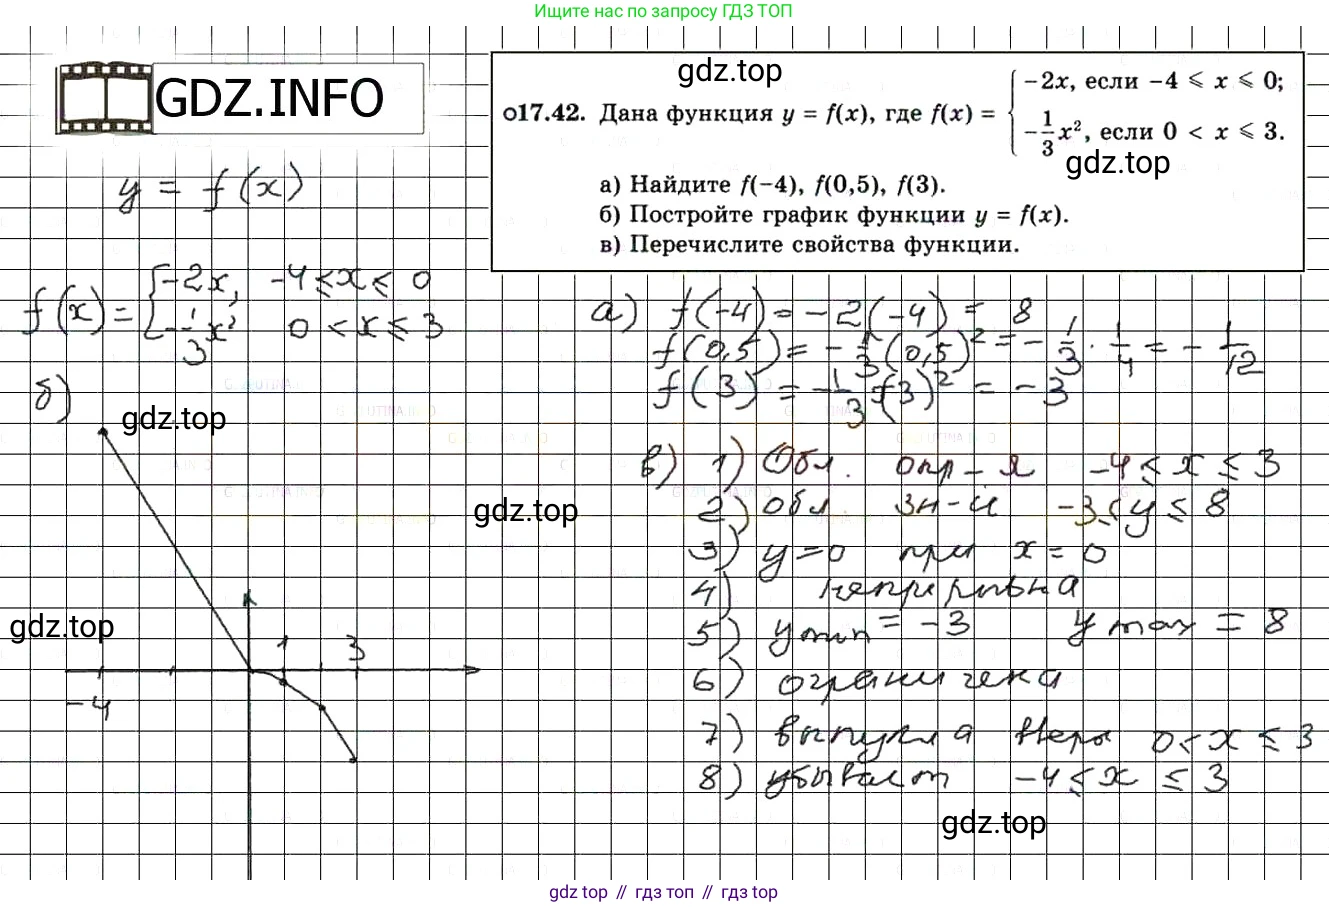 Ищите нас по запросу ГДЗ ТОП
GDZ.INFO
gdz.top
о17.42. Дана функция y = f(x), где f(x) = { −2x, если −4 ⩽ x ⩽ 0; −1/3 x², если 0 < x ⩽ 3.
gdz.top
а) Найдите f(−4), f(0,5), f(3).
б) Постройте график функции y = f(x).
в) Перечислите свойства функции.
y = f(x)
f(x) = { −2x, −4 ≤ x ≤ 0
−1/3 x² 0 < x ≤ 3
а) f(−4) = −2(−4) = 8
f(0,5) = −1/3 (0,5)² = −1/3 · 1/4 = −1/12
f(3) = −1/3 (3)² = −3
б)
gdz.top
gdz.top
gdz.top
1
3
−4
в) 1) Обл. опр-я −4 ≤ x ≤ 3
2) обл зн-й −3 ≤ y ≤ 8
3) y = 0 при x = 0
4) непрерывна
5) y min = −3 y max = 8
6) ограничена
7) выпукла вверх 0 < x ≤ 3
8) убывает −4 ≤ x ≤ 3
gdz.top
gdz top // гдз топ // гдз top